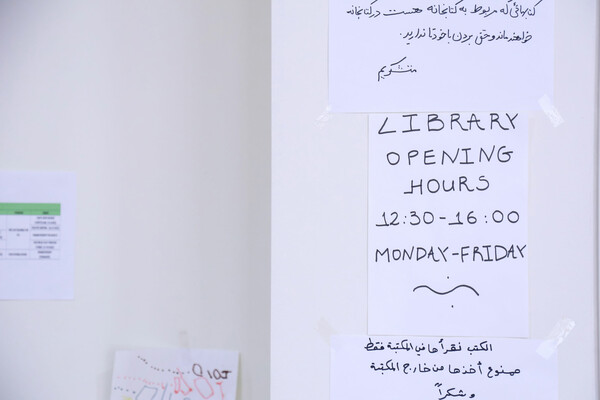 کتابهائی که مربوط به کتابخانه هست در کتابخانه
خوانده ماند وحق بردن باخود تا ندارید.
متشکریم
LIBRARY
OPENING
HOURS
12:30-16:00
MONDAY-FRIDAY
الكتب نقرأها في المكتبة فقط
ممنوع أخذها من خارج المكتبة
وشكراً